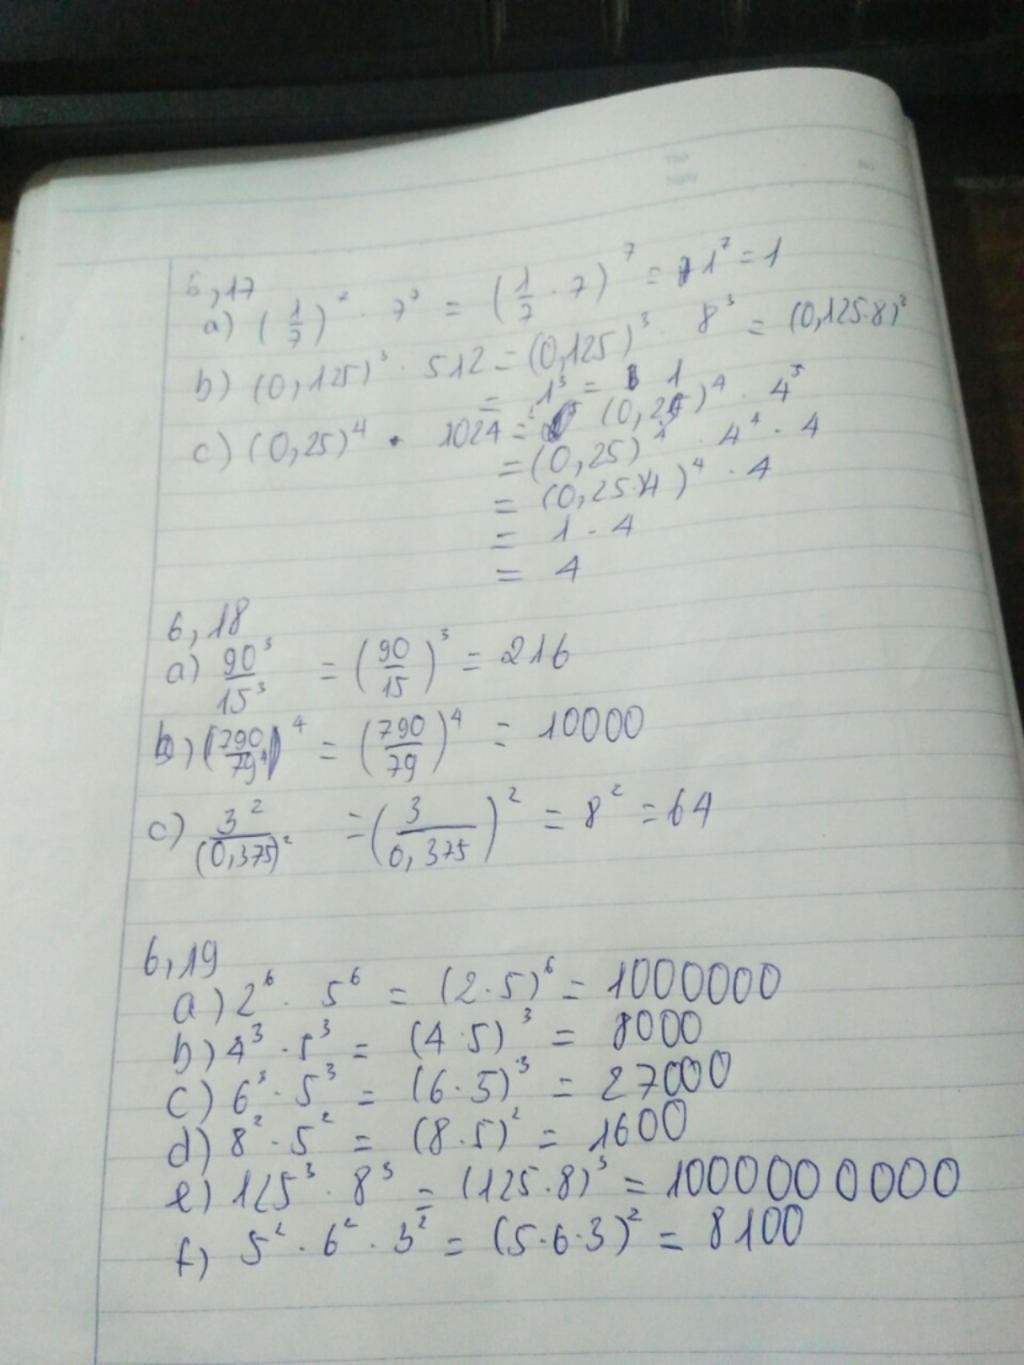 6,17
a) (1/7)⁷ · 7⁷ = (1/7 · 7)⁷ = 1⁷ = 1
b) (0,125)³ · 512 = (0,125)³ · 8³ = (0,125·8)³
= 1³ = 1
c) (0,25)⁴ · 1024 = (0,25)⁴ · 4⁵
= (0,25)⁴ · 4⁴ · 4
= (0,25·4)⁴ · 4
= 1 · 4
= 4
6,18
a) 90³/15³ = (90/15)³ = 216
b) 790⁴/79⁴ = (790/79)⁴ = 10000
c) 3²/(0,375)² = (3/0,375)² = 8² = 64
6,19
a) 2⁶ · 5⁶ = (2·5)⁶ = 1000000
b) 4³ · 5³ = (4·5)³ = 8000
c) 6³ · 5³ = (6·5)³ = 27000
d) 8² · 5² = (8·5)² = 1600
e) 125³ · 8³ = (125·8)³ = 1000000000
f) 5² · 6² · 3² = (5·6·3)² = 8100